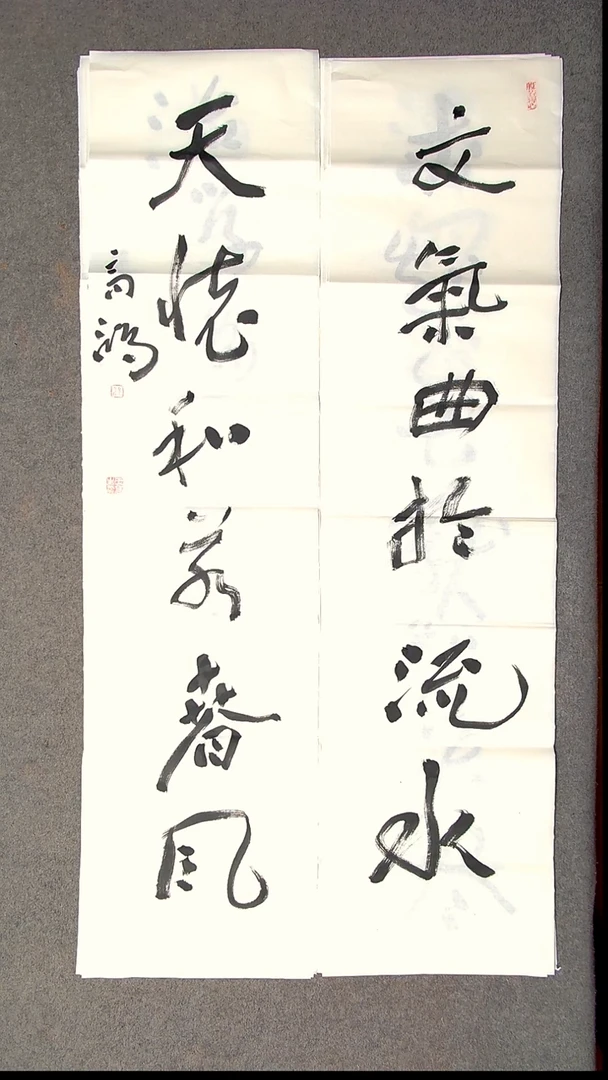 文氣曲於流水
天懷和若春風
高鴻